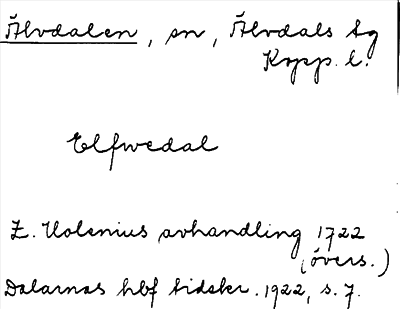 Älvdalen, sn, Älvdals tg
Kopp. l.
Elfwedal
Z. Holenius avhandling 1722
(övers.)
Dalarnas hbf tidskr. 1922, s. 7.